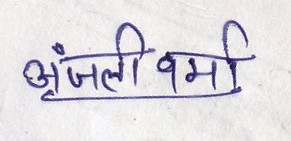 अंजली वर्मा